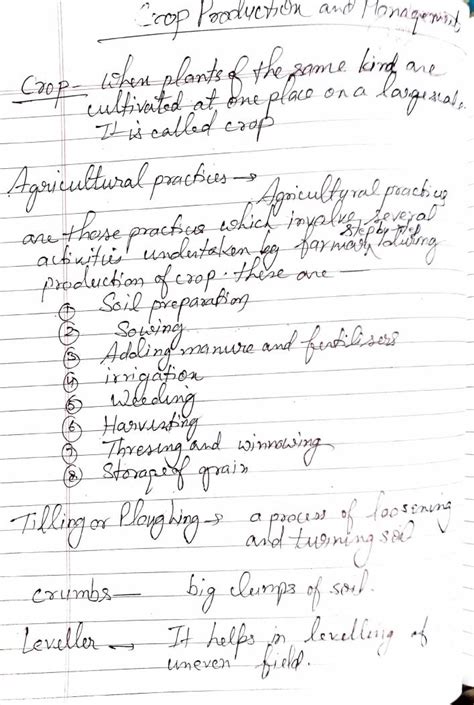 Crop Production and Managements
Crop - When plants of the same kind are
cultivated at one place on a large scale.
It is called crop
Agricultural practices →
Agricultyral practices
are those practices which involve several
step by step
activities undertaken by farmars during
production of crop. these are —
① Soil preparation
② Sowing
③ Adding manure and fertilisers
④ irrigation
⑤ Weeding
⑥ Harvisting
⑦ Thresing and winnowing
⑧ Storage of grain
Tilling or Ploughing → a process of loosening
and turning soil
crumbs — big clumps of soil.
Leveller → It helps in levelling of
uneven field.